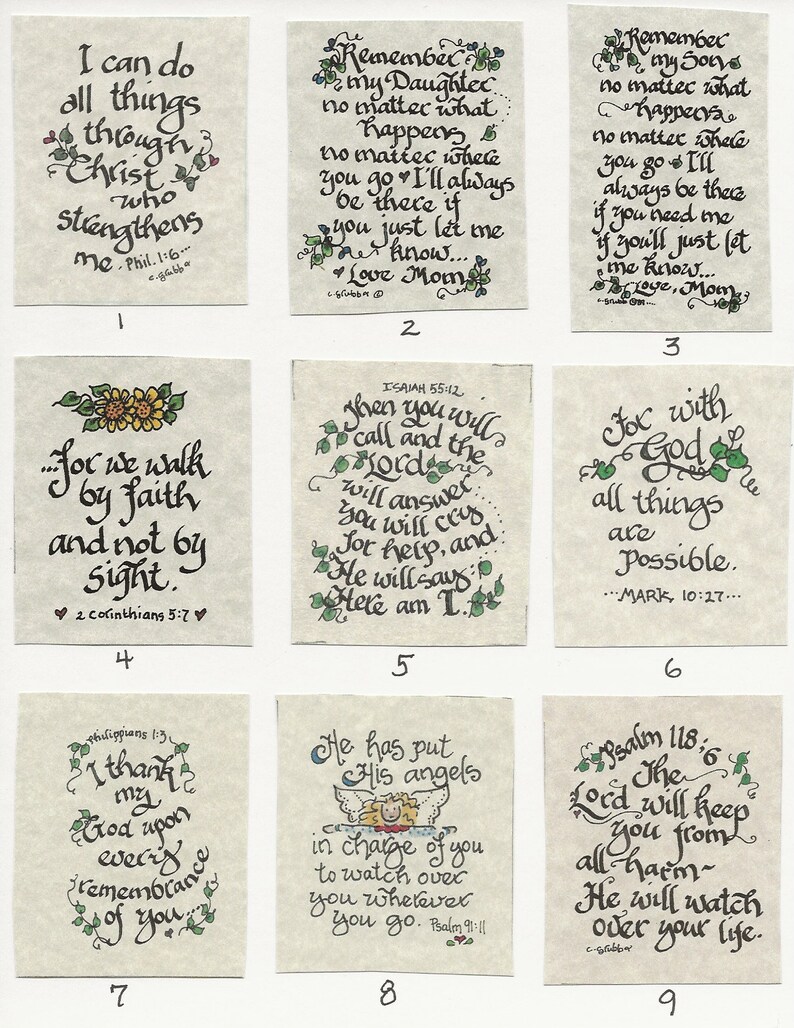 I can do
all things
through
Christ
who
strengthens
me. Phil. 1:6...
c. grubba
1
Remember
my Daughter...
no matter what
happens
no matter where
you go I'll always
be there if
you just let me
know...
Love Mom
c. grubba ©
2
Remember
my Son
no matter what
happens
no matter where
you go I'll
always be there
if you need me
if you'll just let
me know...
Love, Mom
c. grubb
3
...for we walk
by faith
and not by
sight.
2 Corinthians 5:7
4
ISAIAH 55:12
Then you will
call and the
Lord
will answer...
you will cry
for help, and
He will say:
Here am I.
5
For with
God
all things
are
possible.
...MARK 10:27...
6
Philippians 1:3
I thank
my
God upon
every
remembrance
of you...
7
He has put
His angels
in charge of you
to watch over
you wherever
you go. Psalm 91:11
8
Psalm 118:6
The
Lord will keep
you from
all harm~
He will watch
over your life.
c. grubba
9